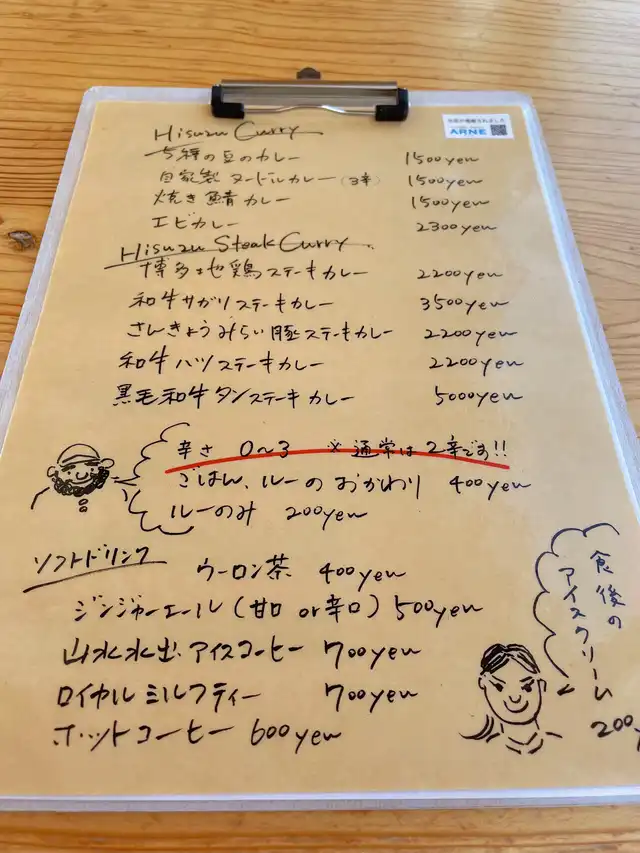 Hisuzu Curry
5種の豆のカレー 1500yen
自家製ヌードルカレー(3辛) 1500yen
焼き鯖カレー 1500yen
エビカレー 2300yen
Hisuzu Steak Curry
博多地鶏ステーキカレー 2200yen
和牛サガリステーキカレー 3500yen
さんきょうみらい豚ステーキカレー 2200yen
和牛ハツステーキカレー 2200yen
黒毛和牛タンステーキカレー 5000yen
辛さ 0~3 ※通常は2辛です!!
ごはん、ルーのおかわり 400yen
ルーのみ 200yen
ソフトドリンク
ウーロン茶 400yen
ジンジャーエール(甘口 or 辛口) 500yen
山水水出アイスコーヒー 700yen
ロイヤルミルクティー 700yen
ホットコーヒー 600yen
食後の
アイスクリーム
200y
ARNE